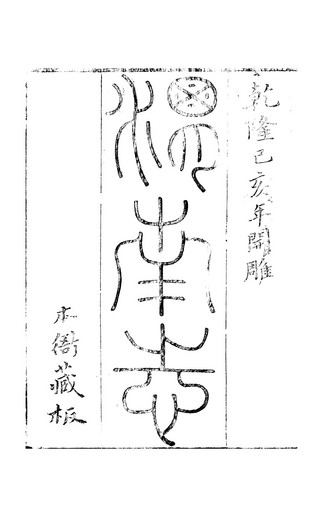 乾隆己亥年開雕
渭南志
本衙藏板